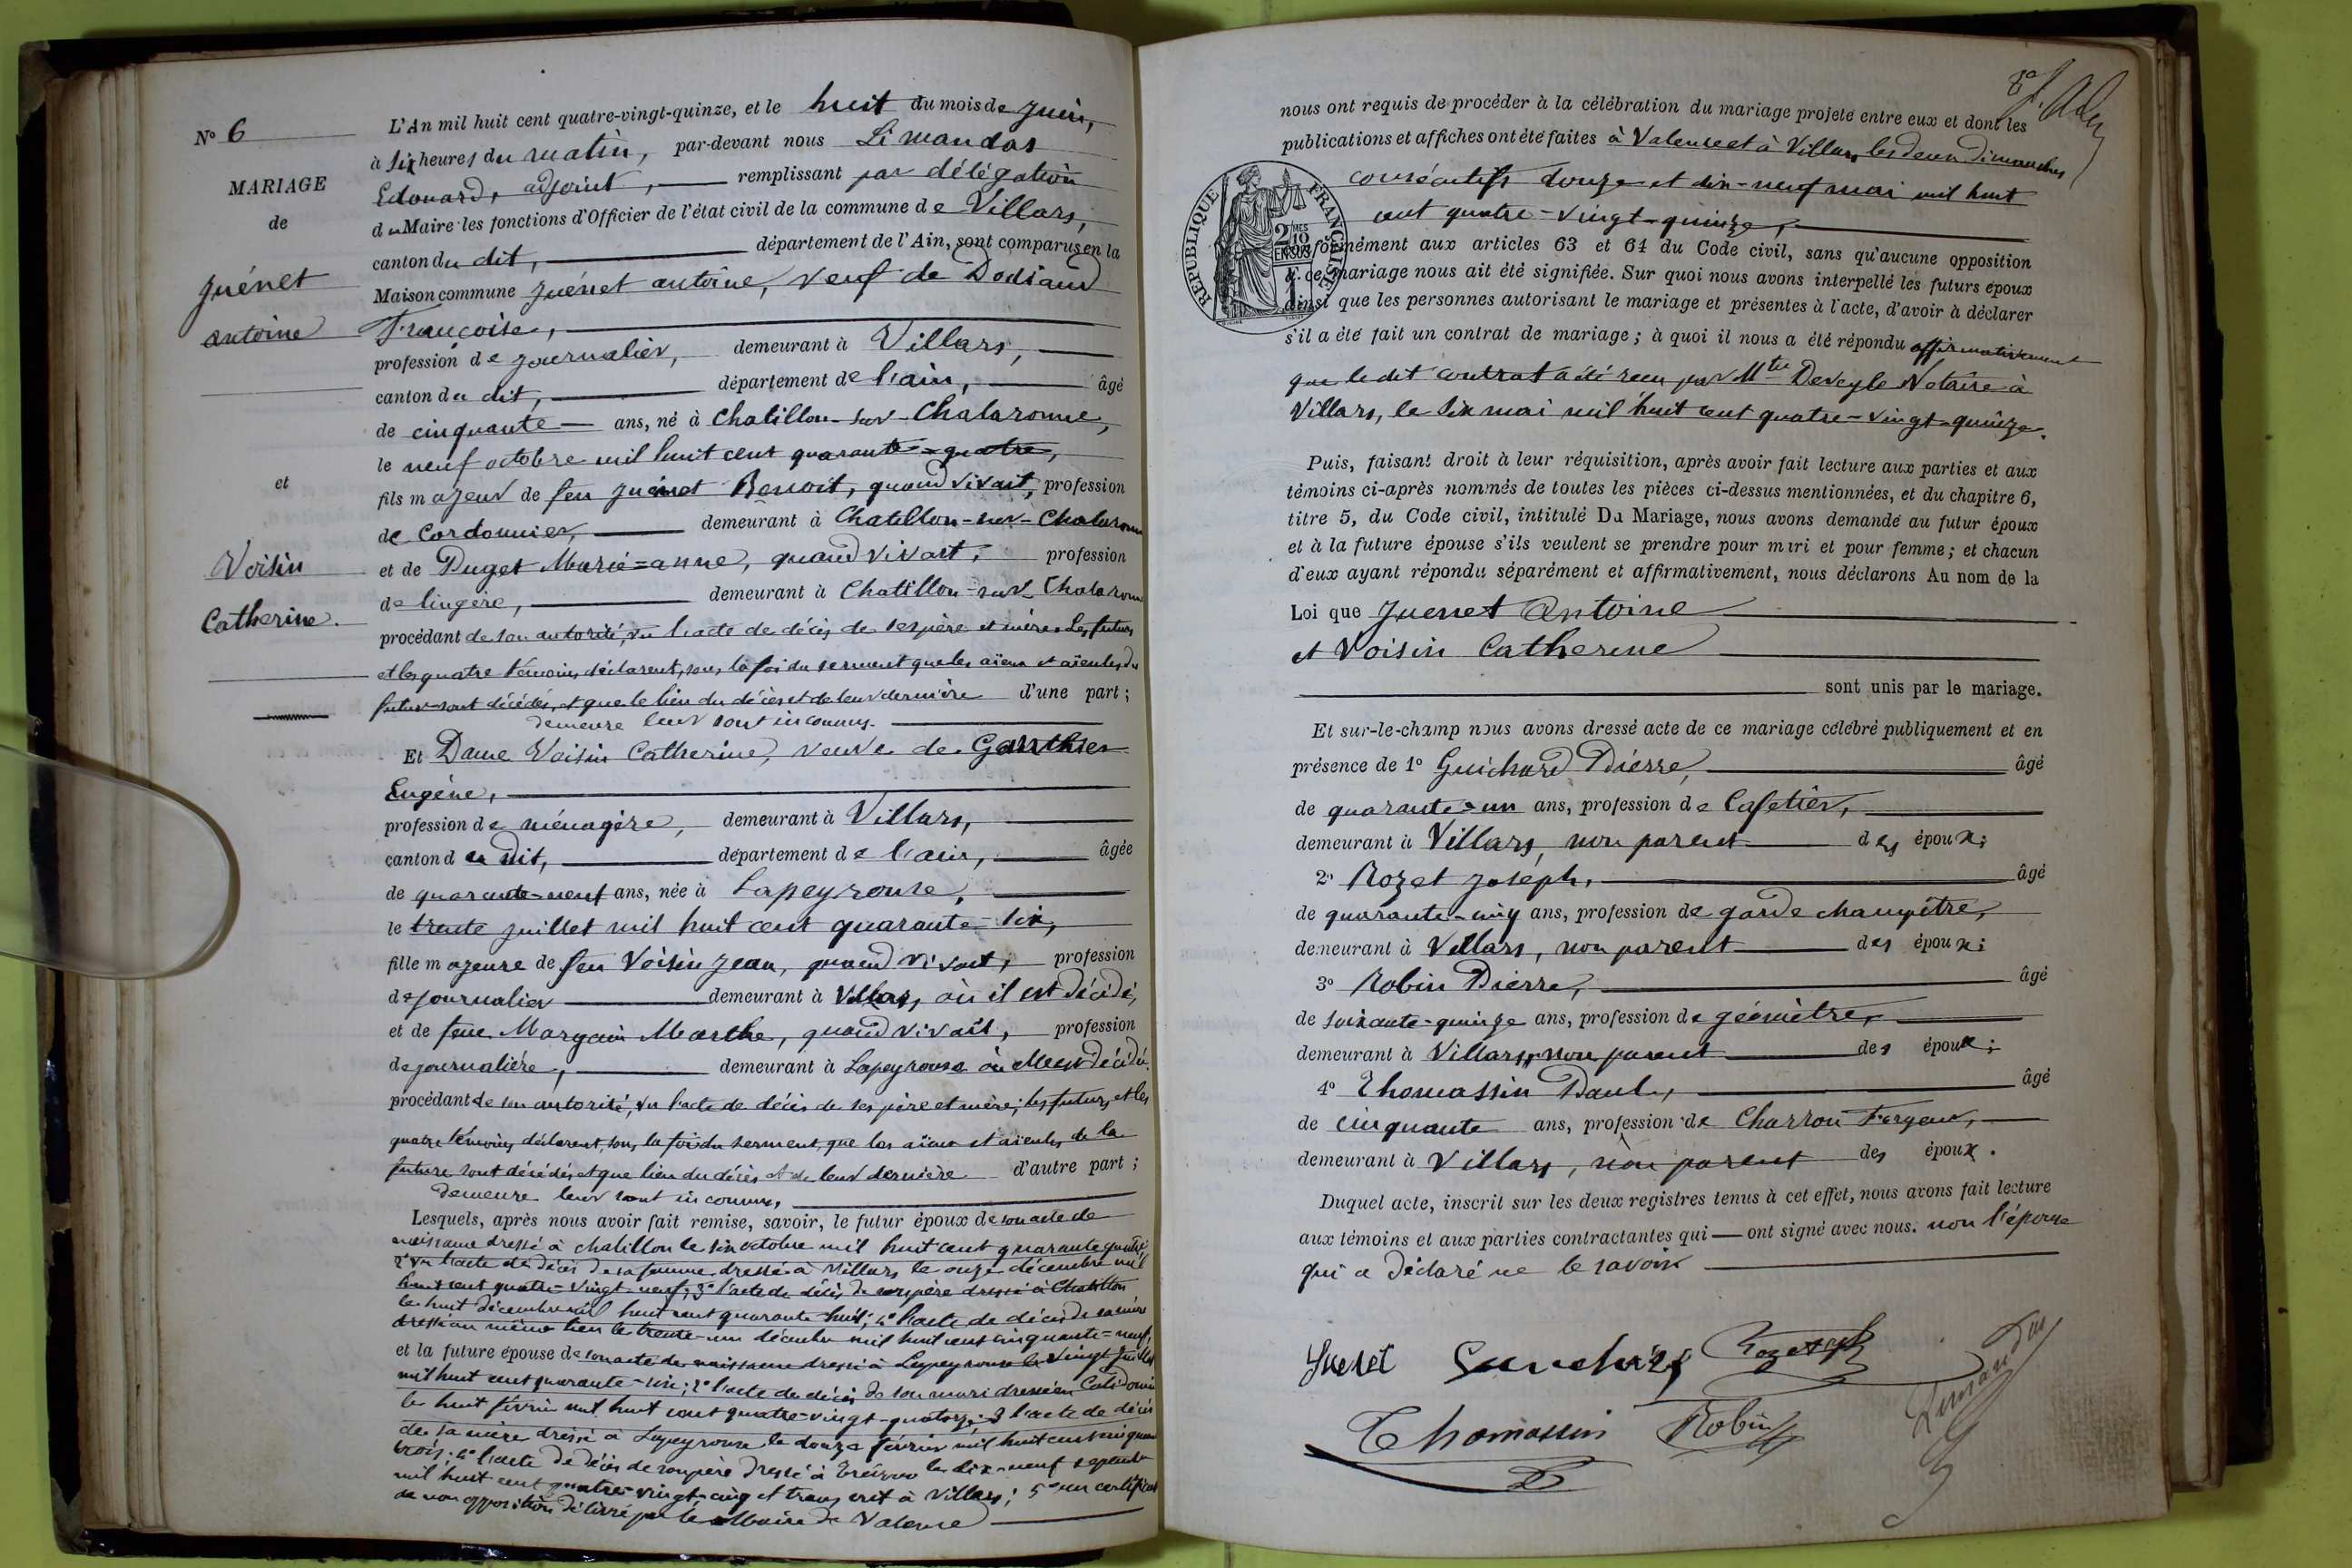 N° 6
MARIAGE
de
Juénet
antoine
et
Voisin
Catherine.
L'An mil huit cent quatre-vingt-quinze, et le huit du mois de Juin,
à six heures du matin, par-devant nous Limandas
Edouard, adjoint, remplissant par délégation
du Maire les fonctions d'Officier de l'état civil de la commune de Villars,
canton du dit, département de l'Ain, sont comparus en la
Maison commune Juénet antoine, veuf de Dodiand
Françoise,
profession de journalier, demeurant à Villars,
canton du dit, département de l'ain, âgé
de cinquante ans, né à Chatillon-sur-Chalaronne,
le neuf octobre mil huit cent quarante-quatre,
fils majeur de feu Juénet Benoit, quand vivait, profession
de Cordonnier, demeurant à Chatillon-sur-Chalaronne
et de Puget Marie=anne, quand vivait, profession
de lingère, demeurant à Chatillon-sur-Chalaronne
procédant de son autorité, vu l'acte de décès de ses père et mère. Les futurs
et les quatre témoins déclarent, sous la foi du serment que les aïeux et aïeules du
futur sont décédés, et que le lieu du décès et de leur dernière d'une part ;
demeure leur sont inconnus.
Et Dame Voisin Catherine, veuve de Ganthier
Eugène,
profession de ménagère, demeurant à Villars,
canton du dit, département de l'ain, âgée
de quarante-neuf ans, née à Lapeyrouse,
le trente juillet mil huit cent quarante-six,
fille majeure de feu Voisin Jean, quand vivait, profession
de journalier demeurant à Villars, où il est décédé,
et de feue Margain Marthe, quand vivait, profession
de journalière, demeurant à Lapeyrouse où elle est décédée.
procédant de son autorité, vu l'acte de décès de ses père et mère ; les futurs et les
quatre témoins déclarent, sous la foi du serment, que les aïeux et aïeules de la
future sont décédés, et que lieu du décès et de leur dernière d'autre part ;
demeure leur sont inconnus,
Lesquels, après nous avoir fait remise, savoir, le futur époux de son acte de
naissance dressé à chatillon le dix octobre mil huit cent quarante quatre
2° vu l'acte de décès de sa femme dressé à Villars le onze décembre mil
huit cent quatre-vingt-neuf ; 3° l'acte de décès de son père dressé à Chatillon
le huit décembre mil huit cent quarante-huit ; 4° l'acte de décès de sa mère
dressé au même lieu le trente-un décembre mil huit cent cinquante=neuf,
et la future épouse de son acte de naissance dressé à Lapeyrouse le juillet
mil huit cent quarante-six ; 2° l'acte de décès de son mari dressé en Calédonie
le huit février mil huit cent quatre-vingt-quatorze ; 3° l'acte de décès
de sa mère dressé à Lapeyrouse le douze février mil huit cent cinquante
trois ; 4° l'acte de décès de son père dressé à le dix-neuf septembre
mil huit cent quatre-vingt-cinq et transcrit à Villars ; 5° un certificat
de non opposition délivré par le Maire de Valence
nous ont requis de procéder à la célébration du mariage projeté entre eux et dont les
publications et affiches ont été faites à Valence et à Villars, les deux Dimanches
consécutifs douze et dix-neuf mai mil huit
cent quatre-vingt-quinze,
conformément aux articles 63 et 64 du Code civil, sans qu'aucune opposition
à ce mariage nous ait été signifiée. Sur quoi nous avons interpellé les futurs époux
ainsi que les personnes autorisant le mariage et présentes à l'acte, d'avoir à déclarer
s'il a été fait un contrat de mariage ; à quoi il nous a été répondu affirmativement
que le dit contrat a été reçu par Mtre Deveyle Notaire à
Villars, le six mai mil huit cent quatre-vingt-quinze.
RÉPUBLIQUE FRANÇAISE
2 MES 10 EN SUS
Puis, faisant droit à leur réquisition, après avoir fait lecture aux parties et aux
témoins ci-après nommés de toutes les pièces ci-dessus mentionnées, et du chapitre 6,
titre 5, du Code civil, intitulé Du Mariage, nous avons demandé au futur époux
et à la future épouse s'ils veulent se prendre pour mari et pour femme ; et chacun
d'eux ayant répondu séparément et affirmativement, nous déclarons Au nom de la
Loi que Juenet Antoine
et Voisin Catherine
sont unis par le mariage.
Et sur-le-champ nous avons dressé acte de ce mariage célébré publiquement et en
présence de 1° Guichard Pierre, âgé
de quarante-un ans, profession de Cafetier,
demeurant à Villars, non parent des époux ;
2° Rozet Joseph, âgé
de quarante-cinq ans, profession de garde champêtre,
demeurant à Villars, non parent des époux ;
3° Robin Pierre, âgé
de soixante-quinze ans, profession de géomètre,
demeurant à Villars, non parent des époux ;
4° Thomassin Paul, âgé
de cinquante ans, profession de Charron Forgeur,
demeurant à Villars, non parent des époux.
Duquel acte, inscrit sur les deux registres tenus à cet effet, nous avons fait lecture
aux témoins et aux parties contractantes qui ont signé avec nous. non l'épouse
qui a déclaré ne le savoir
Juenet Guichard Rozet Jph
Thomassin Robin Limandas